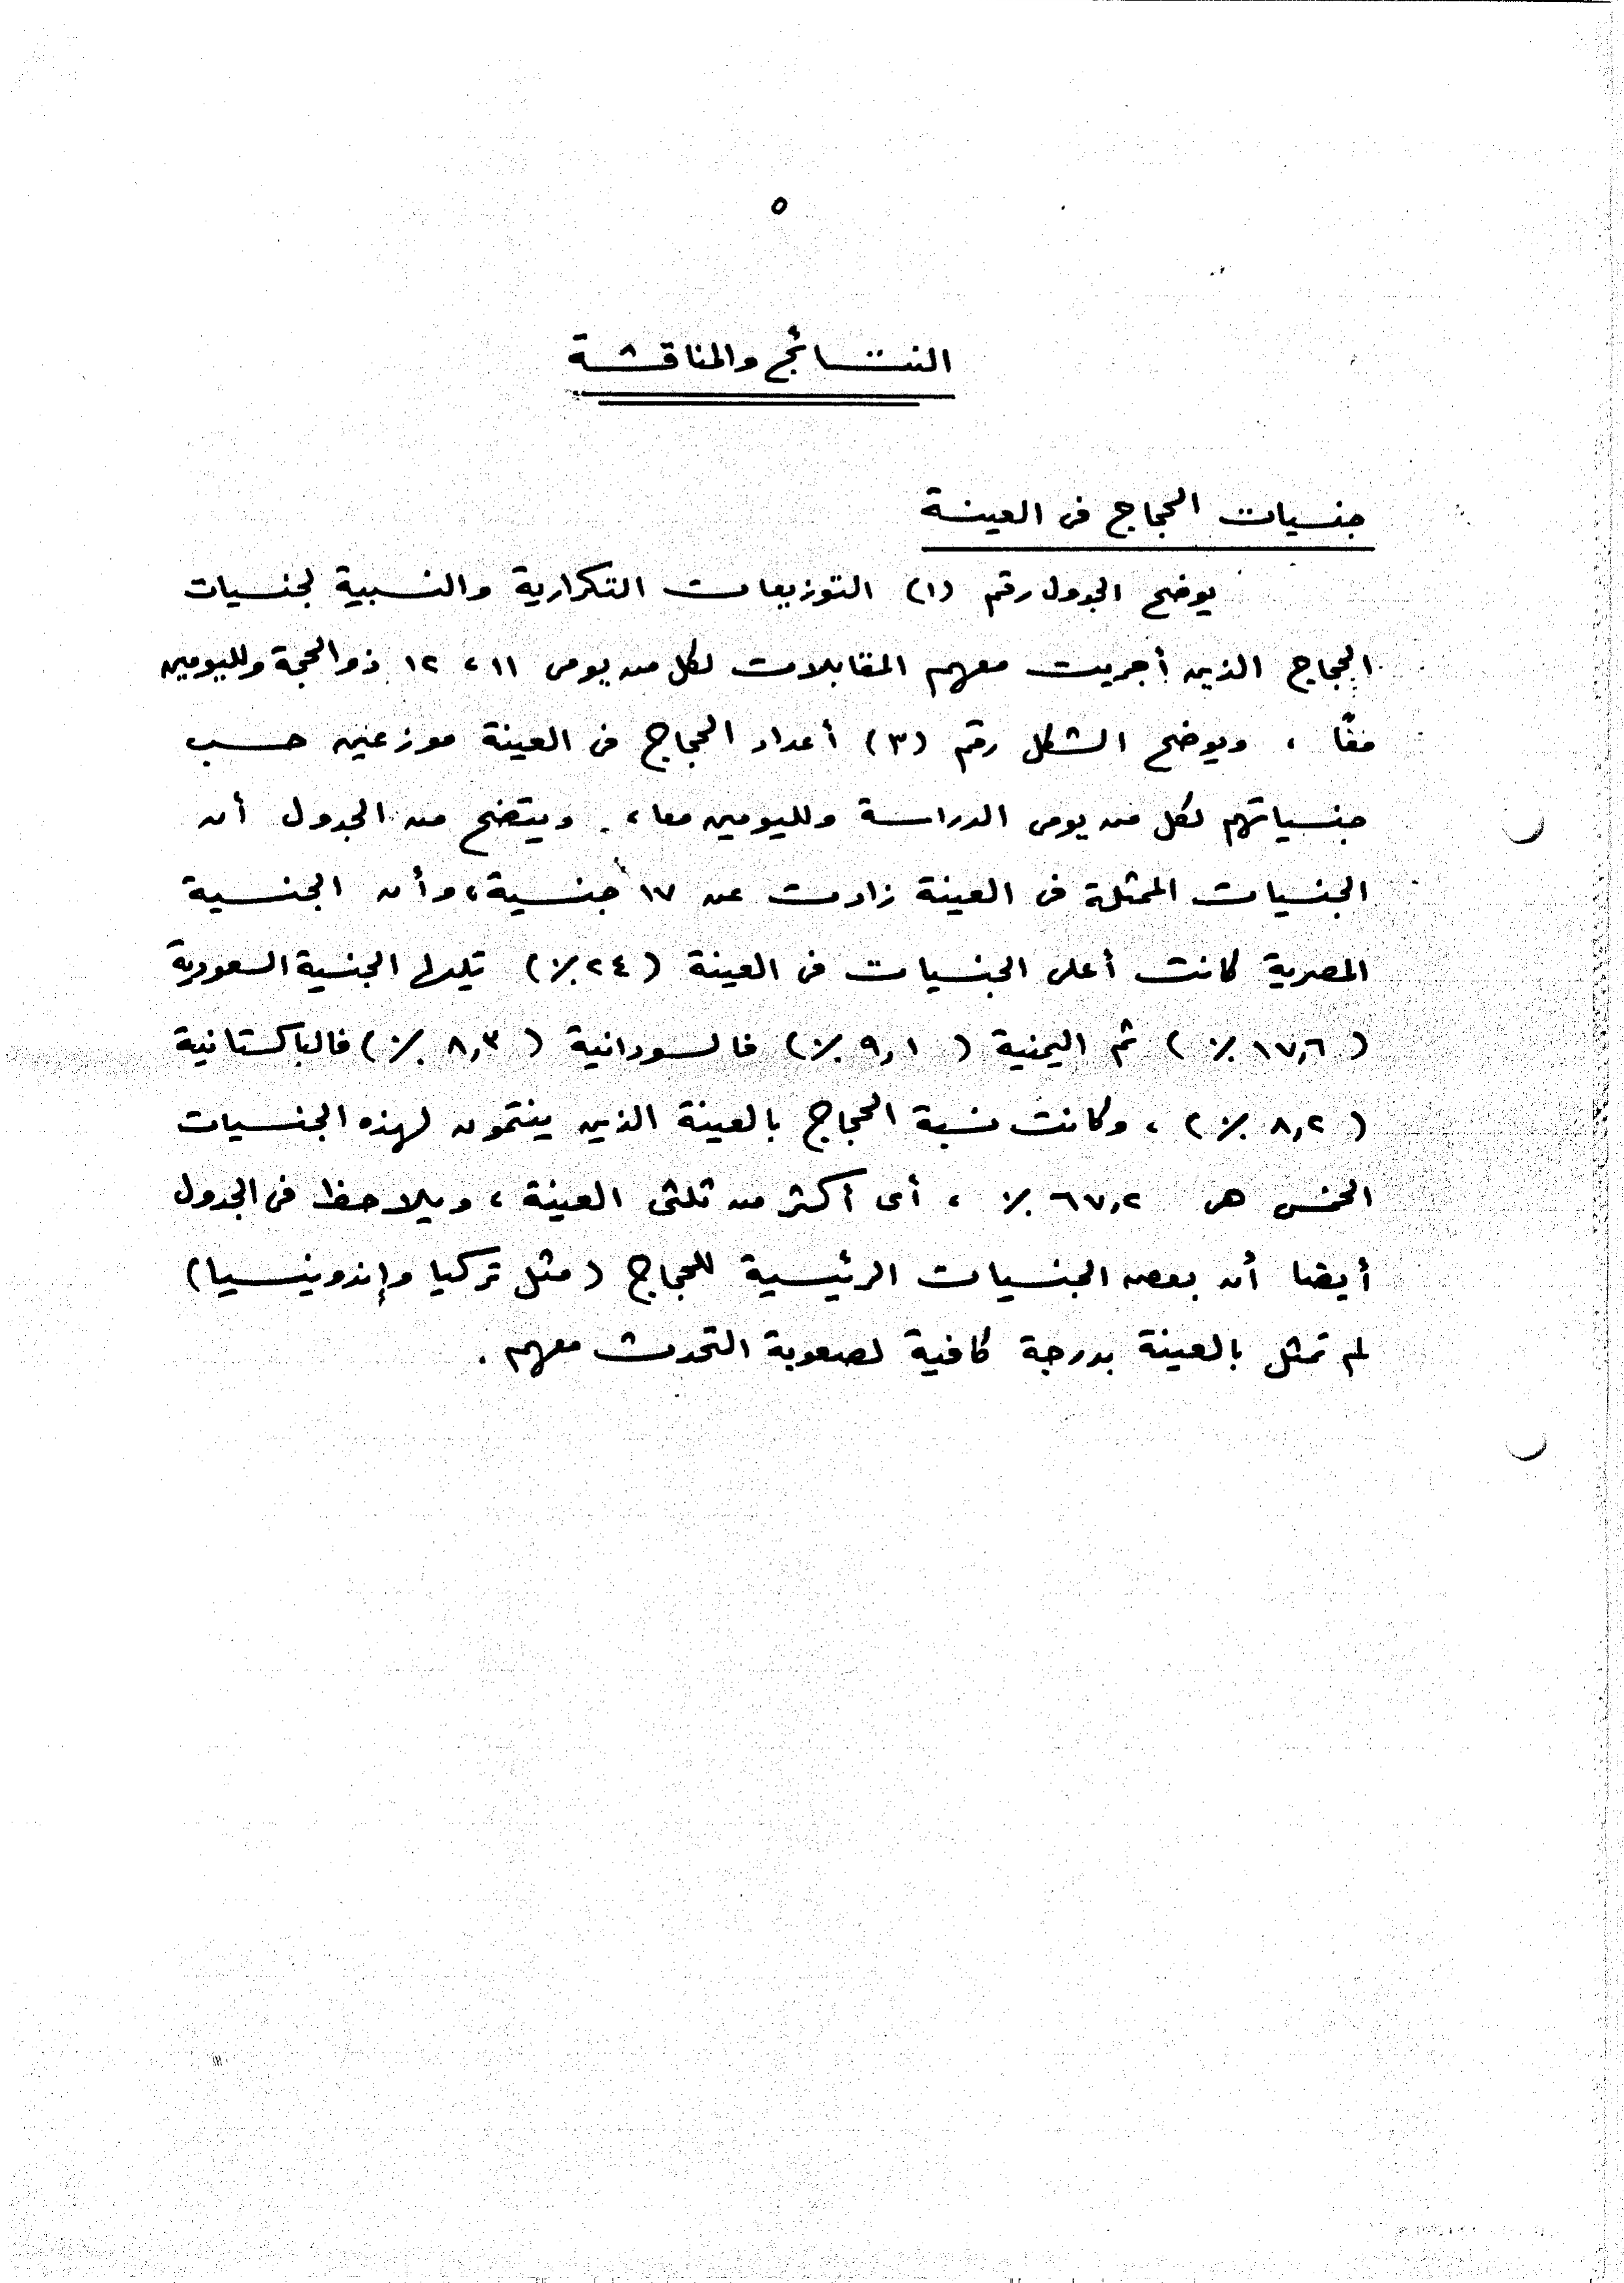 ٥
النتائج والمناقشة
جنسيات الحجاج فى العينة
يوضح الجدول رقم (١) التوزيعات التكرارية والنسبية لجنسيات
الحجاج الذين أجريت معهم المقابلات لكل من يومى ١١ ، ١٢ ذو الحجة ولليومين
معًا ، ويوضح الشكل رقم (٣) أعداد الحجاج فى العينة موزعين حسب
جنسياتهم لكل من يومى الدراسة ولليومين معا ، ويتضح من الجدول أن
الجنسيات الممثلة فى العينة زادت عن ١٧ جنسية ، وأن الجنسية
المصرية كانت أعلى الجنسيات فى العينة (٢٤ ٪) تليها الجنسية السعودية
(١٧,٦ ٪) ثم اليمنية (٩,١ ٪) فالسودانية (٨,٣ ٪) فالباكستانية
(٨,٢ ٪) ، وكانت نسبة الحجاج بالعينة الذين ينتمون لهذه الجنسيات
الخمس هى ٦٧,٢ ٪ ، أى أكثر من ثلثى العينة ، ويلاحظ فى الجدول
أيضا أن بعض الجنسيات الرئيسية للحجاج (مثل تركيا وإندونيسيا)
لم تمثل بالعينة بدرجة كافية لصعوبة التحدث معهم .